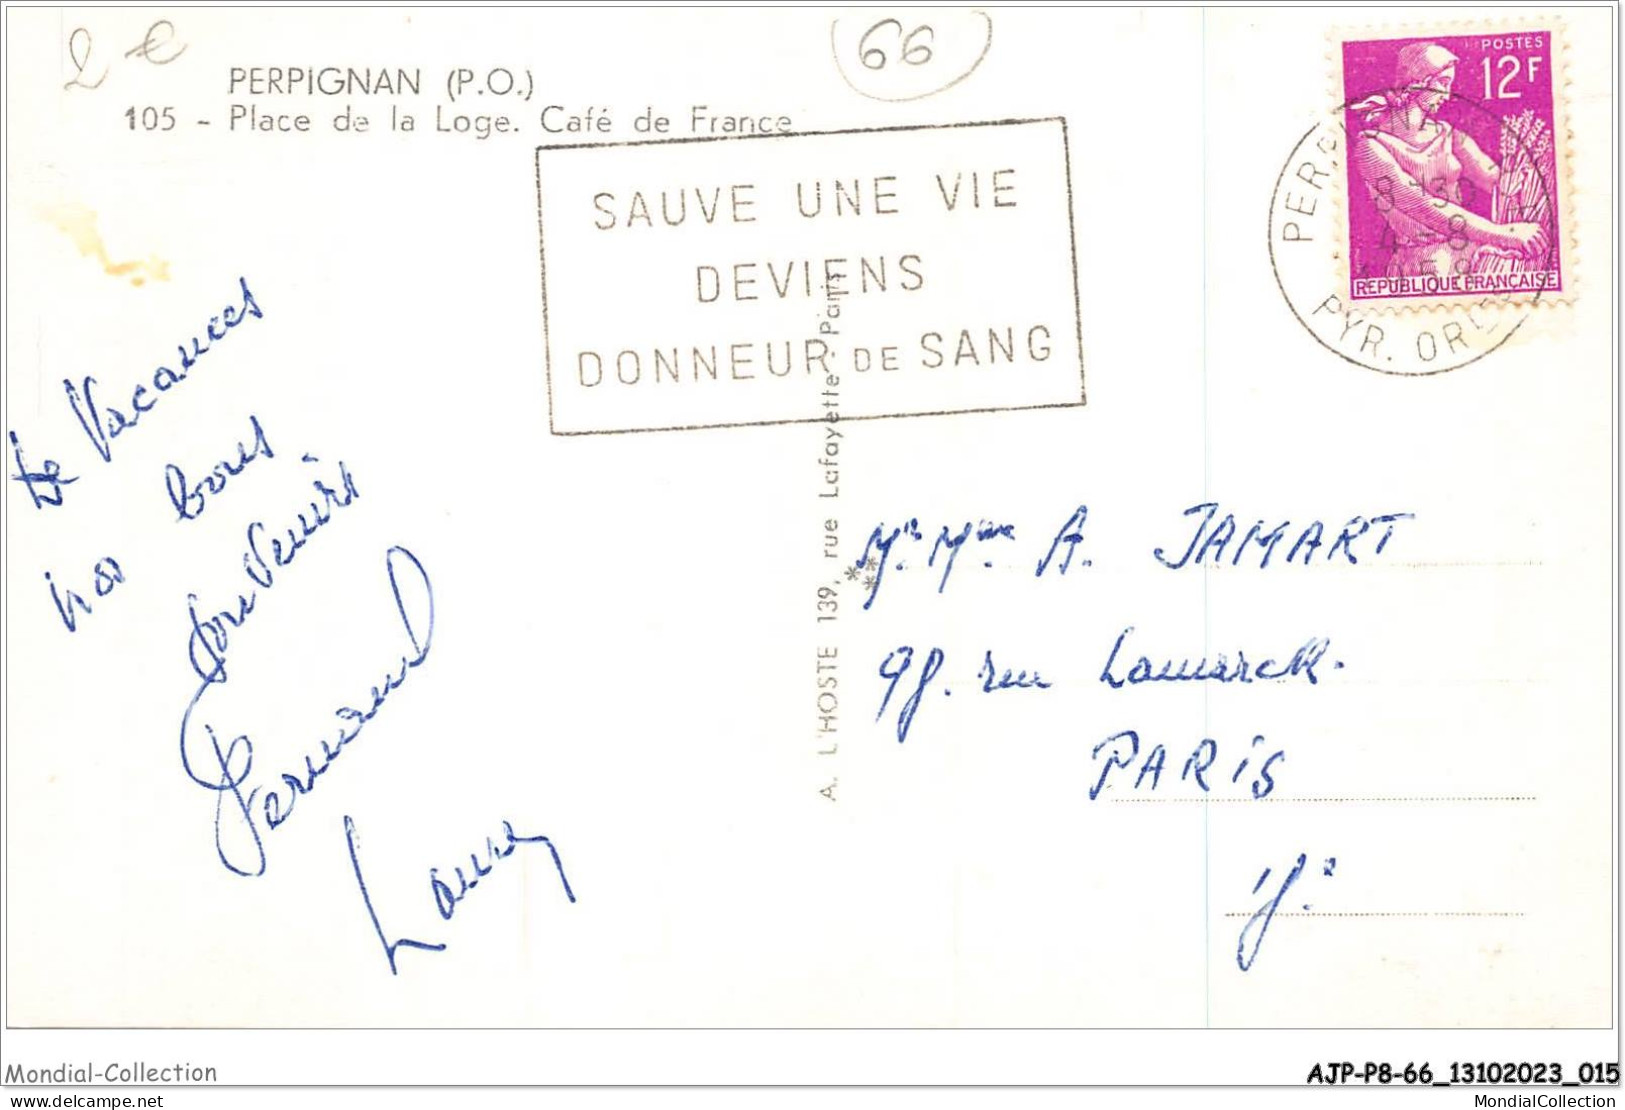 2 €
66
PERPIGNAN (P.O.)
105 - Place de la Loge. Café de France
SAUVE UNE VIE
DEVIENS
DONNEUR DE SANG
POSTES
12F
REPUBLIQUE FRANÇAISE
8-30
4-8
1958
PYR. OR
De Vacances
nos bons
Souvenirs
Fernand
A. L'HOSTE 139, rue Lafayette. Paris
***
Mr. Mme. A. JAMART
98. rue Lamarck.
PARIS
Mondial-Collection
AJP-P8-66_13102023_015
delcampe.net
MondialCollection